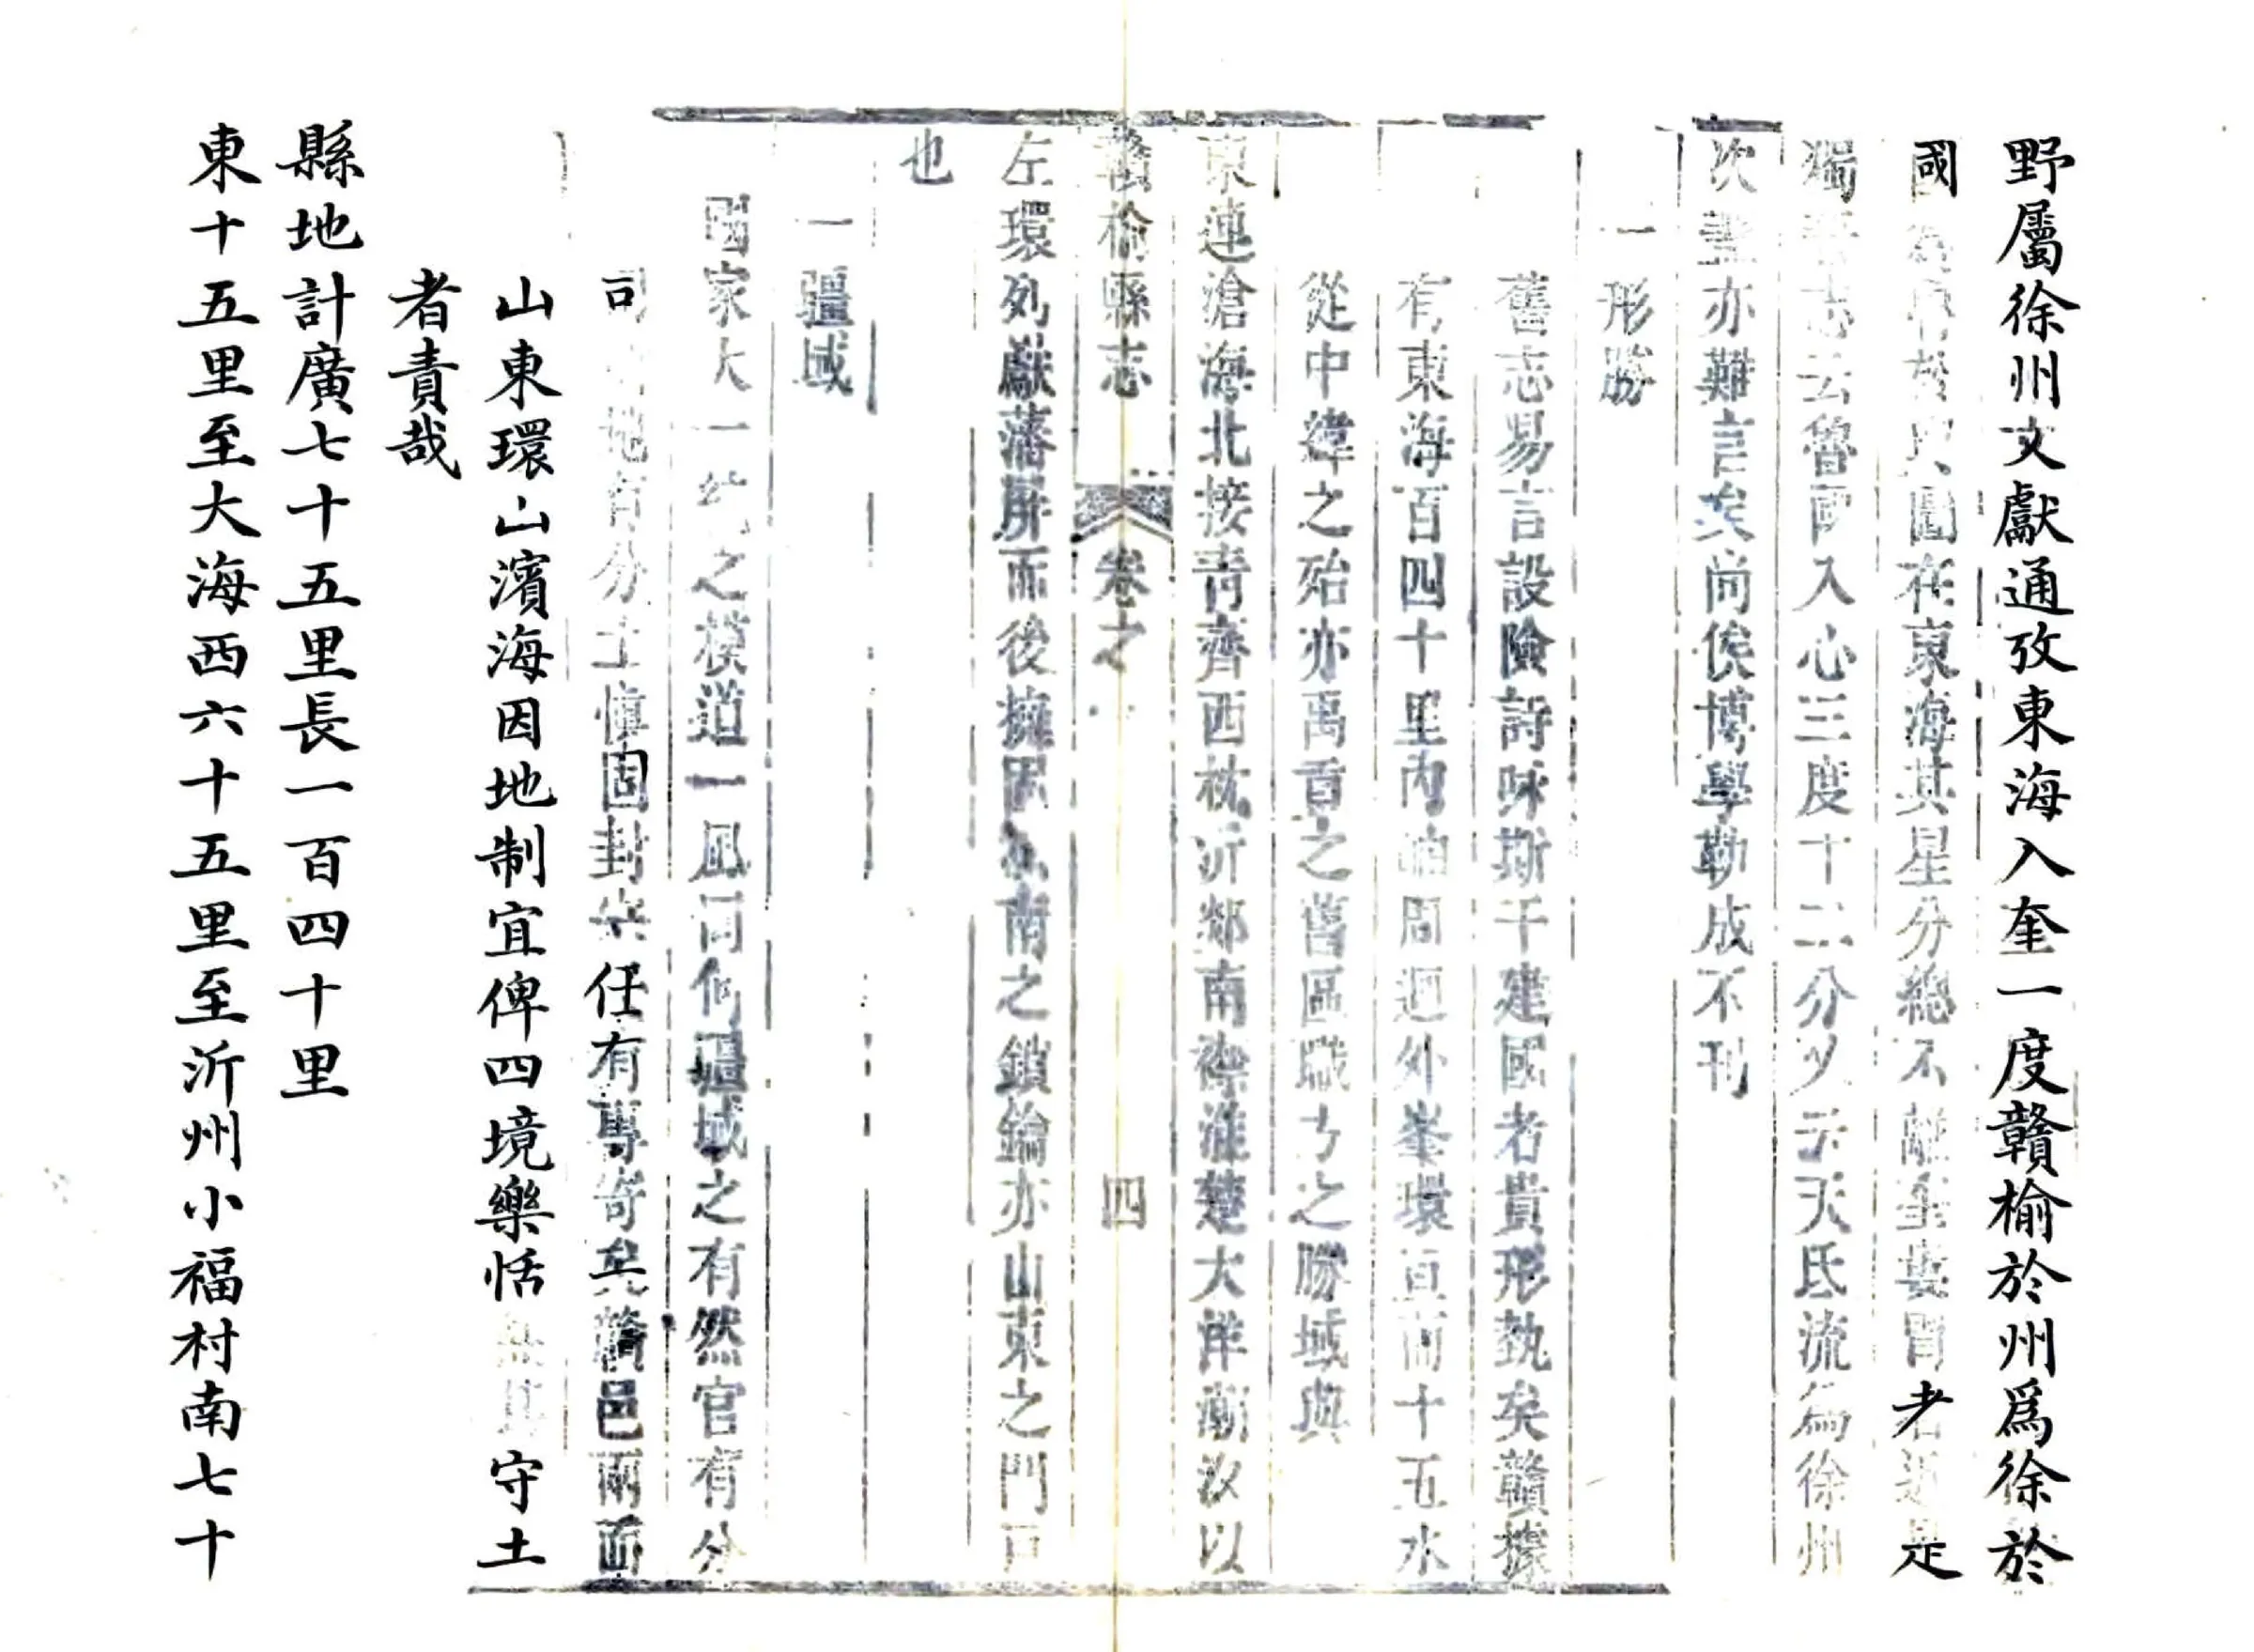 野屬徐州文獻通攷東海入奎一度贛榆於州爲徐於
國在東海其星分總不離奎婁胃者近是
獨志云魯國入心三度十二分又云天氐流爲徐州
次壘亦難言矣尚俟博學勒成不刊
一形勝
舊志易言設險詩咏斯干建國者貴形執矣贛據
有東海百四十里內岫周迴外峯環亘而十五水
從中緯之殆亦禹貢之舊區職方之勝域與
東連滄海北接青齊西枕沂郯南襟淮楚大洋潮汐以
贛榆縣志 卷之 四
左環列巘藩屏而後擁淮南之鎖鑰亦山東之門戶
也
一疆域
國家大一統之模道一風同何疆域之有然官有分
司地有分土慎固封守任有專寄矣贛邑兩面
山東環山濱海因地制宜俾四境樂恬守土
者責哉
縣地計廣七十五里長一百四十里
東十五里至大海西六十五里至沂州小福村南七十